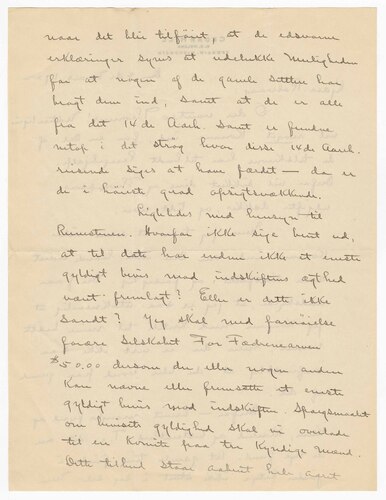 naar det blir tilföiet, at de edsvorne
erklæringer synes at udelukke Muligheden
for at nogen af de gamle Settlere har
bragt dem ind, samt at de er alle
fra det 14de Aarh. samt er fundne
netop i det strög hvor disse 14de Aarh.
reisende siges at have færdet — da er
de i höieste grad opsigtsvækkende.
Ligeledes med hensyn til
Runestenen. Hvorfor ikke sige bent ud,
at til dato har endnu ikke et eneste
gyldigt bevis mod indskriftens ægthed
været fremlagt? Eller er dette ikke
Sandt? Jeg skal med fornöielse
forære Selskabet For Fædrenearven
$50.00 dersom du eller nogen anden
kan nævne eller fremsætte et eneste
gyldigt bevis mod indskriften. Spörgsmaalet
om bevisets gyldighed skal vi overlade
til en Komite paa tre Kyndige mænd.
Dette tilbud staar aabent hele aaret